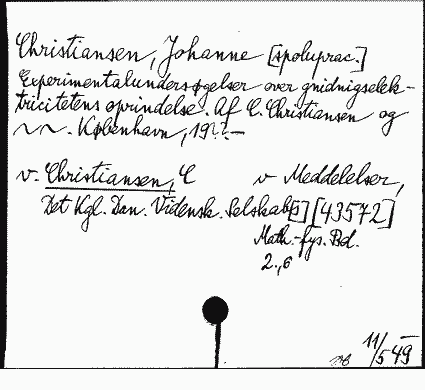 Christiansen, Johanne [spoluprac.]
Experimentalundersøgelser over gnidnigselek-
tricitetens oprindelse. Af C. Christiansen og
~~. København, 19??—
v. Christiansen, C v Meddelelser,
Det Kgl. Dan. Vidensk. Selskab[s] [43572]
Math.-fys. Bd.
2.,6
11/549